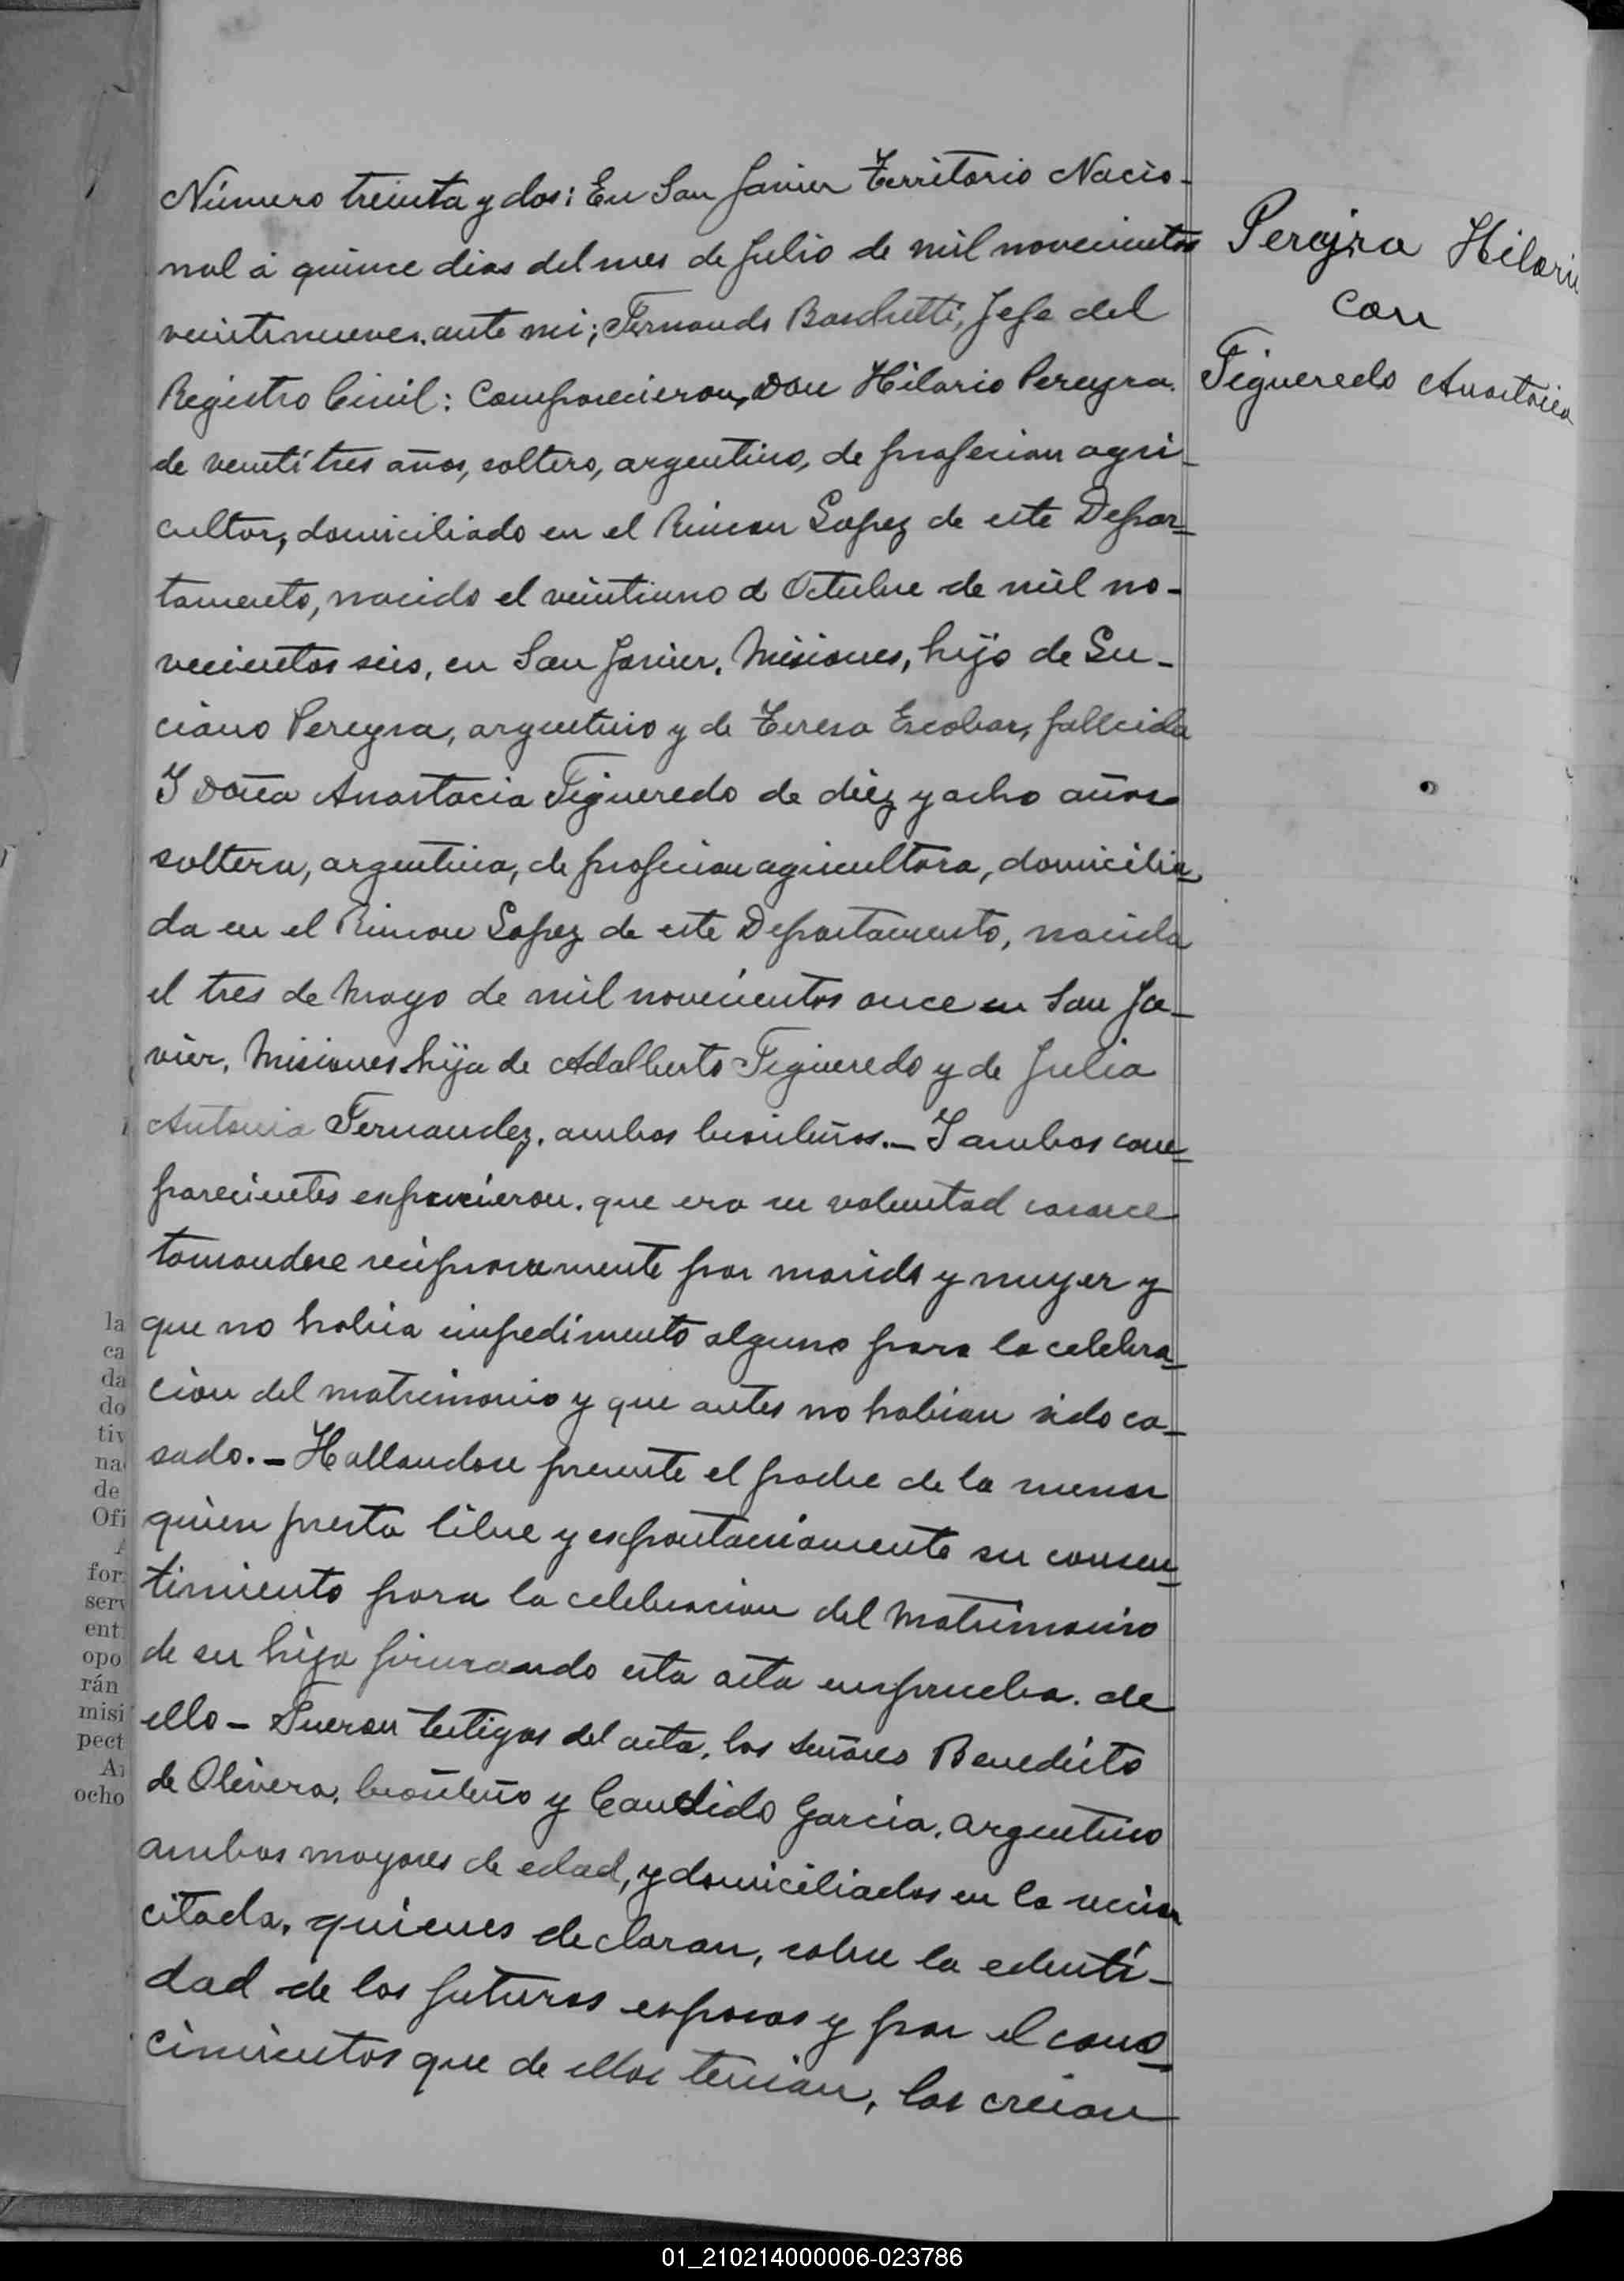 Número treinta y dos: En San Javier Territorio Nacio-
nal á quince dias del mes de Julio de mil novecientos
veintinueve. ante mi; Fernando Boschetti, Jefe del
Registro Civil: Comparecieron, Don Hilario Pereyra.
de ventitres años, soltero, argentino, de profesion agri-
cultor, domiciliado en el Rincon Lopez de este Depar-
tamento, nacido el veintiuno d Octubre de mil no-
vecientos seis, en San Javier. Misiones, hijo de Lu-
ciano Pereyra, argentino y de Teresa Escobar, fallcida
Y Doña Anastacia Figueredo de diez y ocho años
soltera, argentina, de profecion agricultora, domicilia-
da en el Rincon Lopez de este Departamento, nacida
el tres de Mayo de mil novecientos once en San Ja-
vier. Misiones hija de Adalberto Figueredo y de Julia
Antonia Fernandez. ambos brasileños.- Y ambos com-
parecientes expucieron. que era su voluntad casarce
tomandose reciprocamente por marido y muyer y
que no habia impedimento alguno para la celebra-
cion del matrimonio y que antes no habian sido ca-
sado. - Hallandose presente el padre de la menor
quien presta libre y expontaniamente su consen-
timiento para la celebracion del Matrimonio
de su hija firmando esta acta en prueba. de
ello - Fueron testigos del acta. los señores Benedicto
de Olivera. brasileño y Candido Garcia. argentino
ambos mayores de edad, y domiciliados en la
citada. quienes declaran, sobre la edenti-
dad de los futuros esposos y por el cono-
cimientos que de ellos tenian, los creian
Perejra Hilari
con
Figueredo Anastacia
la
ca
da
do
tiv
na
de
Ofi
for
serv
ent
opo
rán
misi
pect
A
ocho
01_210214000006-023786